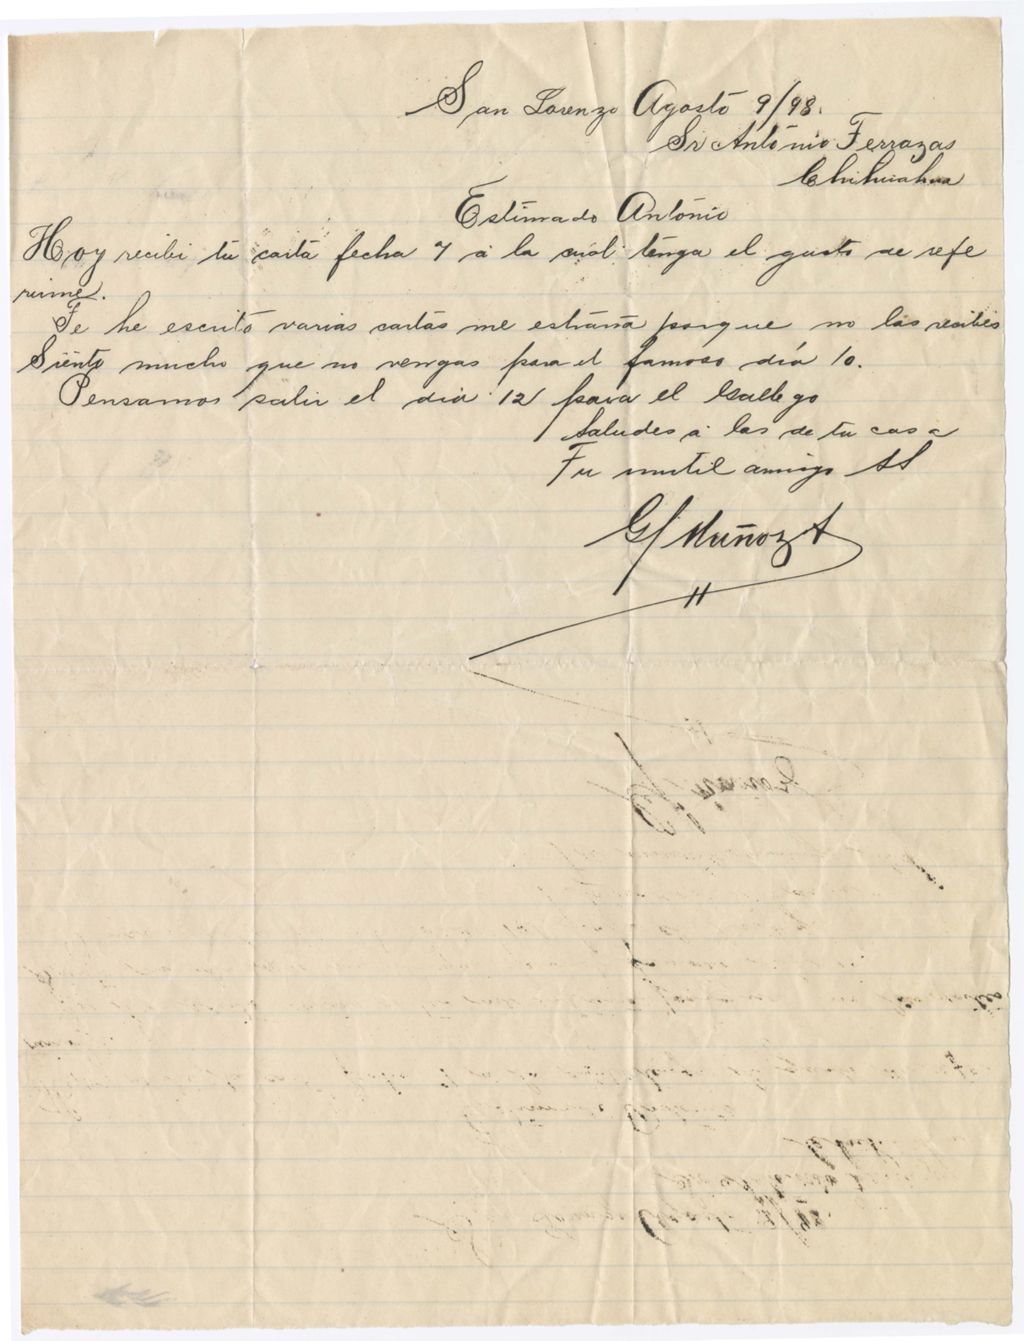 San Lorenzo Agosto 9/98.
Sr António Terrazas
Chihuahua
Estimado António
Hoy recibi tu carta fecha 7 a la cual tenga el gusto de refe
rirme.
Te he escrito varias cartas me estraña porque no las recibes
Siento mucho que no vengas para el famoso día 10.
Pensamos salir el dia 12 para el Gallego
Saludes a las de tu casa
Tu inutil amigo SS
G/ Muñoz A